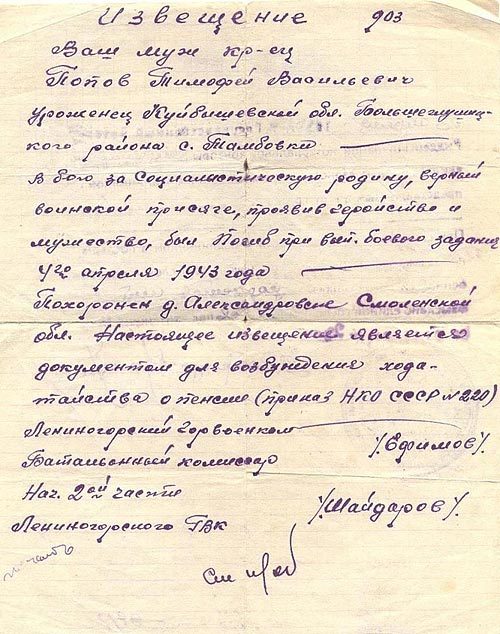 Извещение 903
Ваш муж кр-ец
Попов Тимофей Васильевич
уроженец Куйбышевской обл. Большеглушиц-
кого района с. Тамбовки
в бою за социалистическую родину, верный
воинской присяге, проявив геройство и
мужество, был Погиб при вып. боевого задания
4го апреля 1943 года
Похоронен д. Александровске Смоленской
обл. Настоящее извещение является
документом для возбуждения хода-
тайства о пенсии (приказ НКО СССР №220)
Лениногорский горвоенком
/Ефимов/.
Батальонный комиссар
Нач. 2ой части
/Шайдаров/.
Лениногорского ГВК